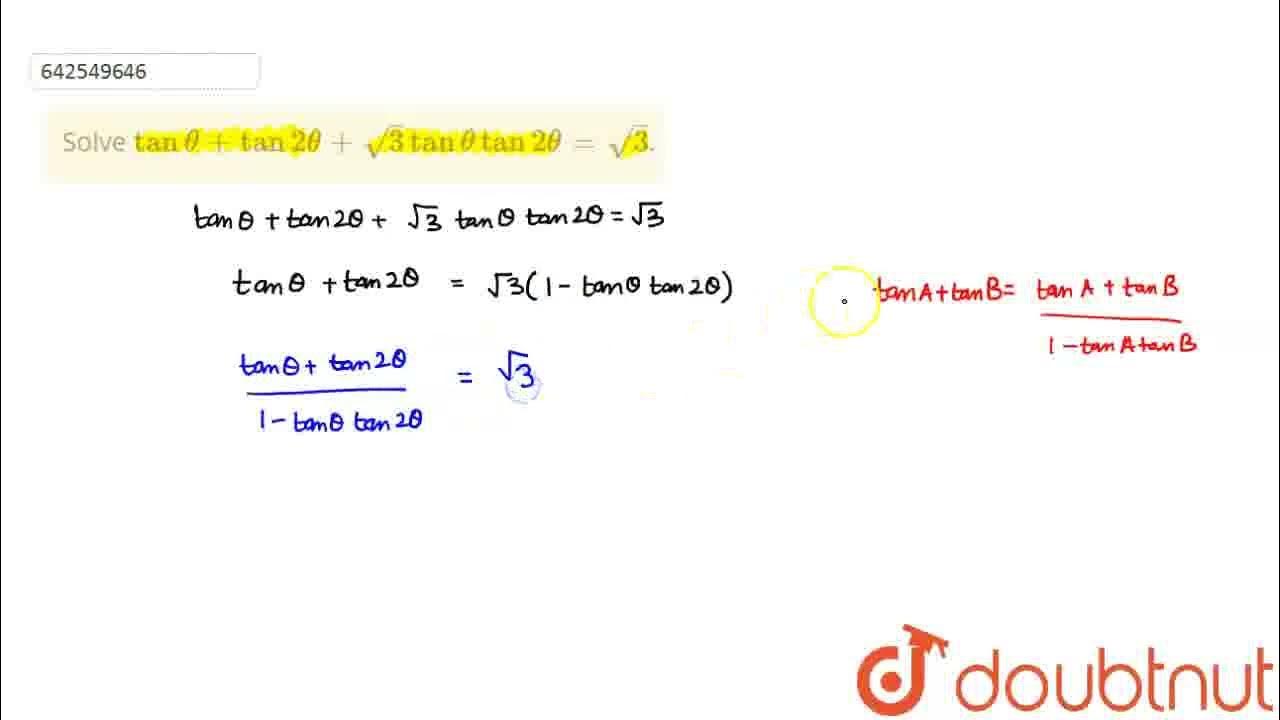 642549646
Solve tan θ + tan 2θ + √3 tan θ tan 2θ = √3.
tan θ + tan 2θ + √3 tan θ tan 2θ = √3
tan θ + tan 2θ = √3 (1 - tan θ tan 2θ)
tan A + tan B = tan A + tan B
1 - tan A tan B
tan θ + tan 2θ = √3
1 - tan θ tan 2θ
doubtnut